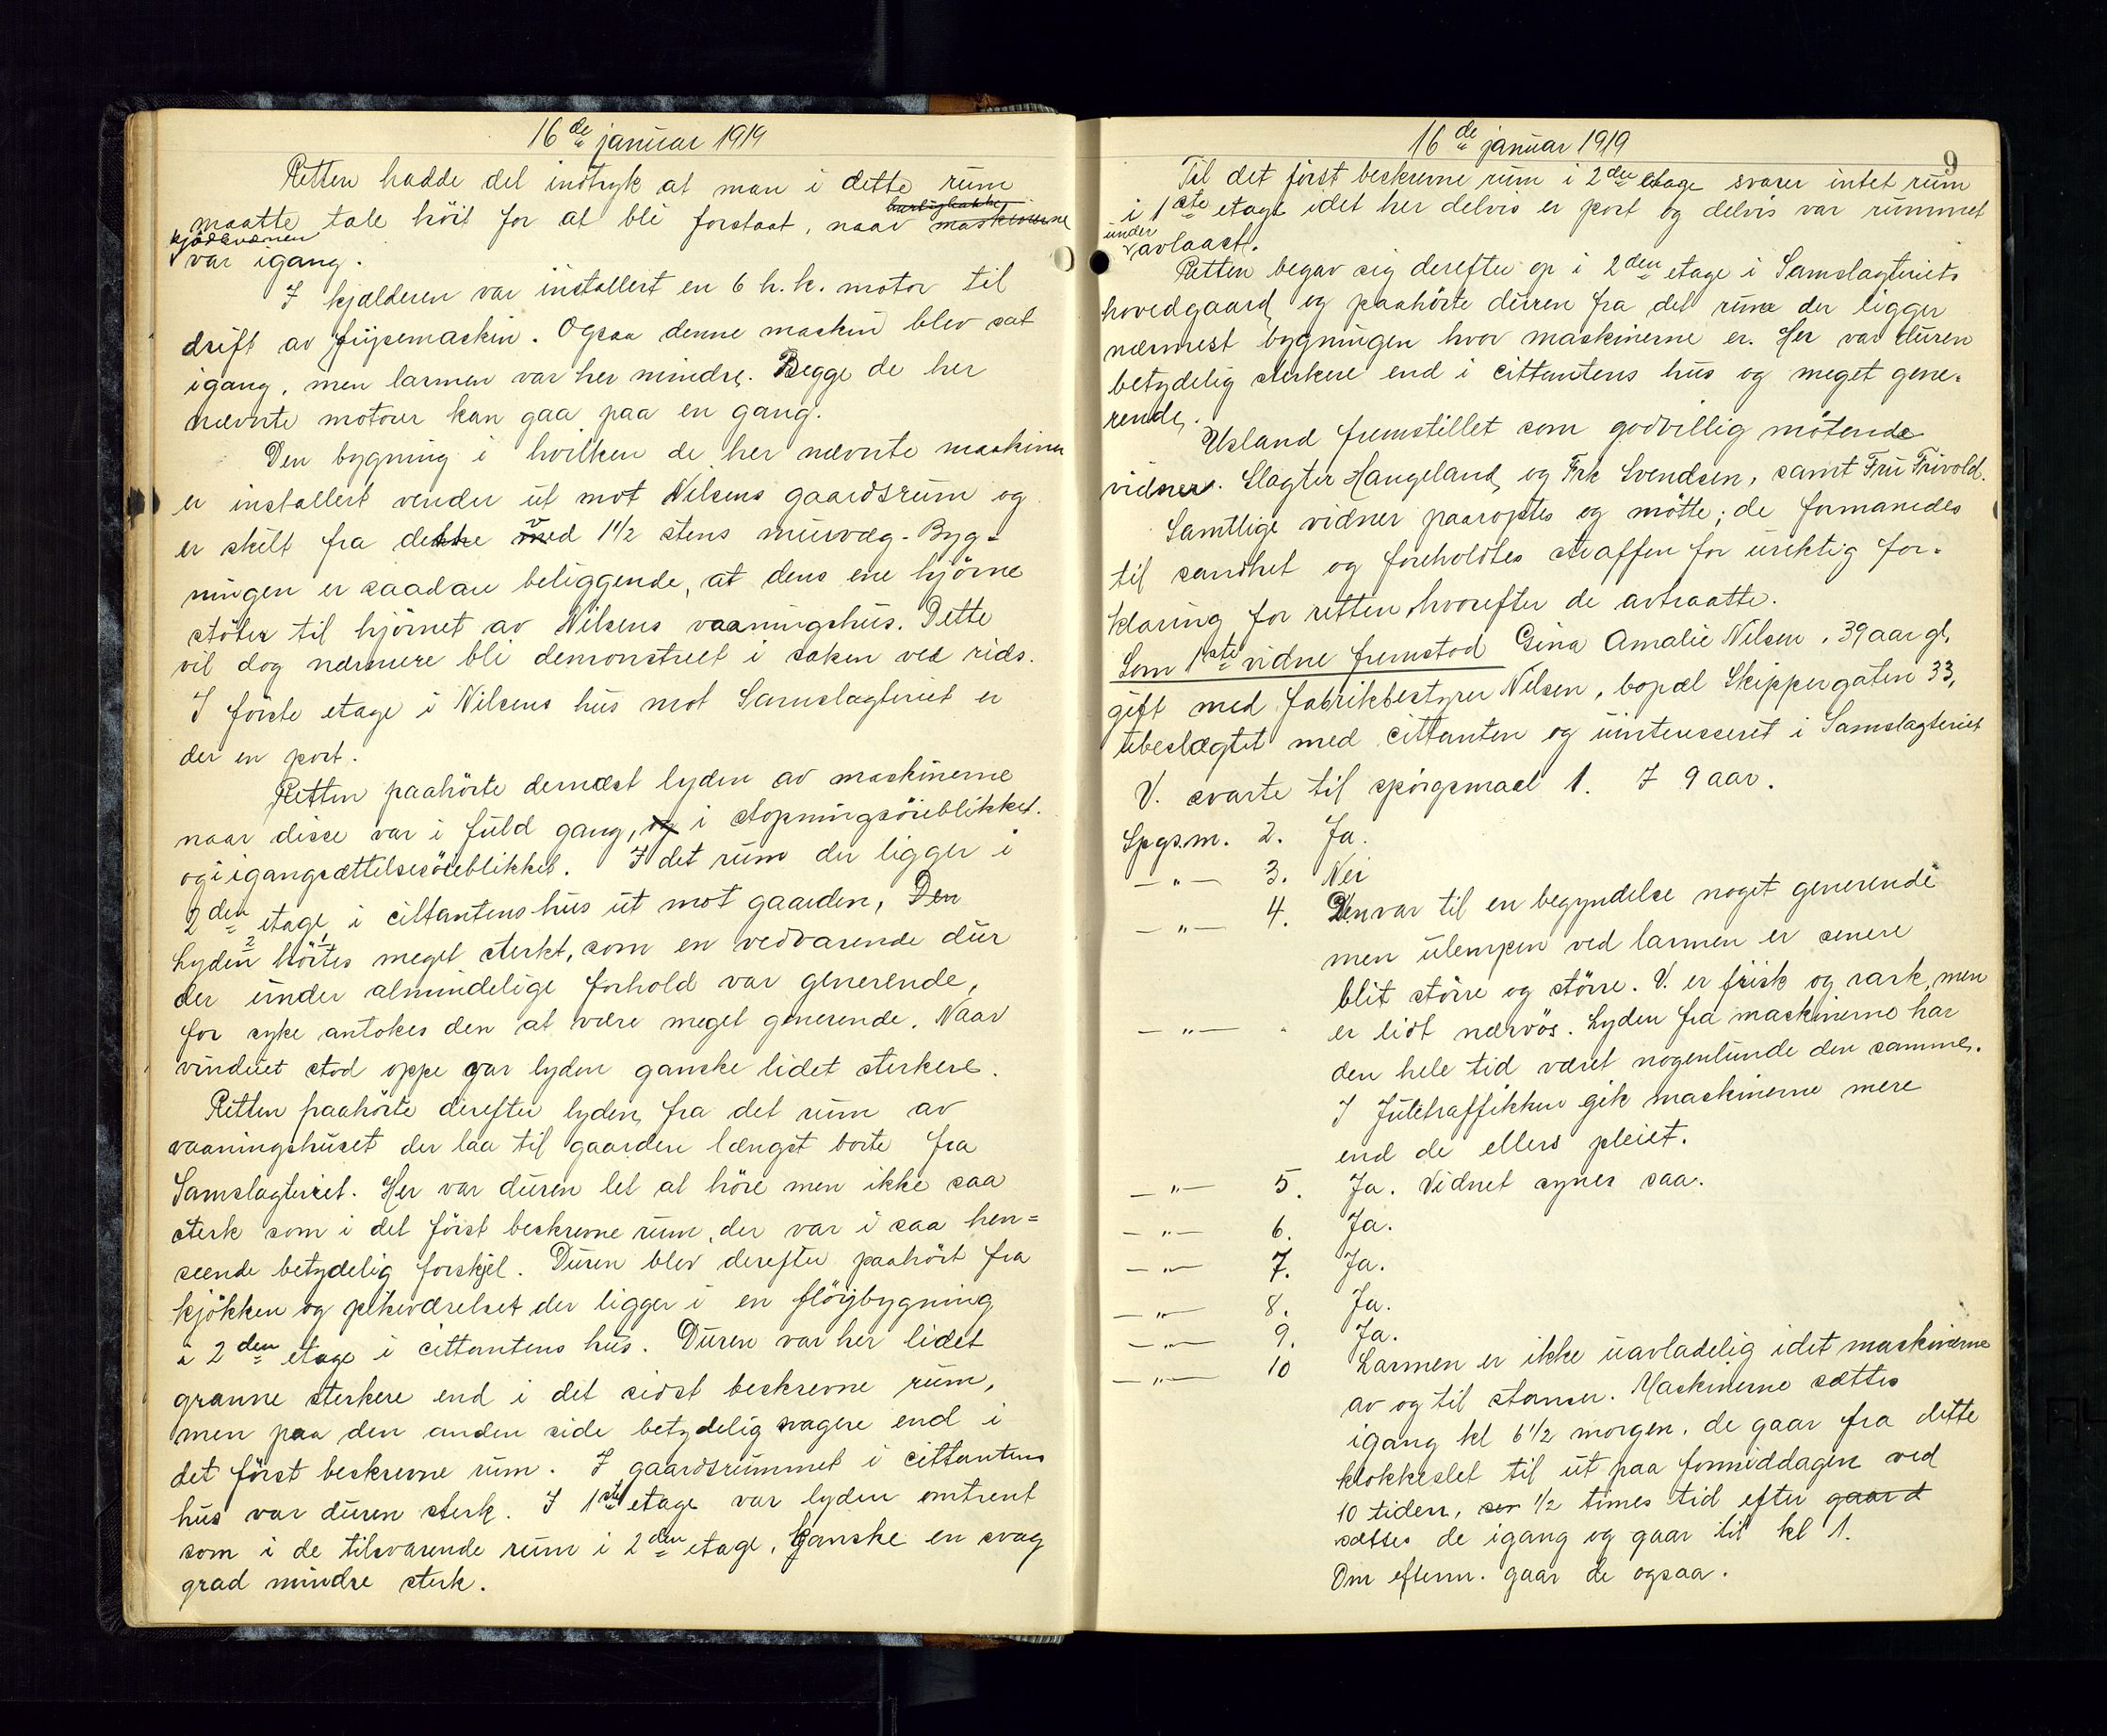 16de januar 1919
Retten hadde det indtryk at man i dette rum
maatte tale höit for at bli forstaat, naar maskinerne
kjödkvernen
var igang.
I kjælderen var installert en 6 h.k. motor til
drift av frysemaskin. Ogsaa denne maskin blev sat
igang, men larmen var her mindre. Begge de her
nævnte motorer kan gaa paa en gang.
Den bygning i hvilken de her nævnte maskiner
er installert vender ut mot Nilsens gaardsrum og
er skilt fra dette ved 1 1/2 stens murvæg. Byg-
ningen er saadan beliggende, at dens ene hjörne
stöter til hjörnet av Nilsens vaaningshus. Dette
vil dog nærmere bli demonstreet i saken ved rids.
I förste etage i Nilsens hus mot Samslagteriet er
der en port.
Retten paahörte dernæst lyden av maskinerne
naar disse var i fuld gang, og i stopningsöieblikket.
og i igangsættelsesöieblikket. I det rum der ligger i
2den etage i cittantens hus ut mot gaarden, Den
2 1
Lyden hörtes meget sterkt, som en vedvarende dur
der under almindelige forhold var generende,
for syke antokes den at være meget generende. Naar
vinduet stod oppe var lyden ganske lidet sterkere.
Retten paahörte derefter lyden fra det rum av
vaaningshuset der laa til gaarden længst borte fra
Samslagteriet. Her var duren let at höre men ikke saa
sterk som i det först beskrevne rum, der var i saa hen=
seende betydelig forskjel. Duren blev derefter paahört fra
kjökken og pikeværelset der ligger i en flöybygning
i 2den etage i cittantens hus. Duren var her lidet
granne sterkere end i det sidst beskrevne rum,
men paa den anden side betydelig svagere end i
det först beskrevne rum. I gaardsrummet i cittantens
hus var duren sterk. I 1ste etage var lyden omtrent
som i de tilsvarende rum i 2den etage, kanske en svag
grad mindre sterk.
16de januar 1919
9
Til det först beskrevne rum i 2den etage svarer intet rum
i 1ste etage idet her delvis er port og delvis var rummet
under
avlaast.
Retten begav sig derefter op i 2den etage i Samslagteriets
hovedgaard, og paahörte duren fra det rum der ligger
nærmest bygningen hvor maskinerne er. Her var duren
betydelig sterkere end i cittantens hus og meget gene-
rende.
Usland fremstillet som godvillig mötende
vidner. Slagter Haugeland, og Frk Svendsen, samt Fru Frivold.
Samtlige vidner paaroptes og mötte; de formanedes
til sandhet og foreholdtes straffen for uriktig for-
klaring for retten hvorefter de avtraatte.
Som 1ste vidne fremstod Gina Amalie Nilsen, 39 aar gl,
gift med fabrikbestyrer Nilsen, bopæl Skippergaten 33,
ubeslægtet med cittanten og uinteresseret i Samslagteriet
V. svarte til spörgsmaal 1. I 9 aar.
Spgsm. 2. Ja.
—"— 3. Nei
—"— 4. Den var til en begyndelse noget generende
men ulempen ved larmen er senere
blit större og större. V. er frisk og rask, men
—"— er lidt nærvös. Lyden fra maskinerne har
den hele tid været nogenlunde den samme.
I Juletraffikken gik maskinerne mere
end de ellers pleiet.
—"— 5. Ja. Vidnet synes saa.
—"— 6. Ja.
—"— 7. Ja.
—"— 8. Ja.
—"— 9. Ja.
—"— 10 Larmen er ikke uavladelig idet maskinerne
av og til stanser. Maskinerne sættes
igang kl 6 1/2 morgen, de gaar fra dette
klokkeslet til ut paa formiddagen ved
10 tiden, sen 1/2 times tid efter gaar d
sættes de igang og gaar til kl 1.
Om efterm. gaar de ogsaa.